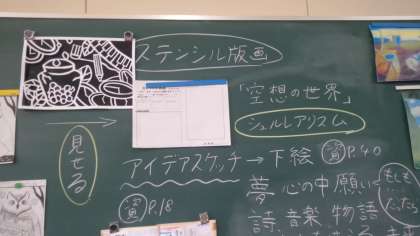 ステンシル版画
「空想の世界」
シュルレアリスム
見せる
アイデアスケッチ→下絵 資 P.40
資 P.18
夢 心の中 願い
もしも
詩、音楽 物語